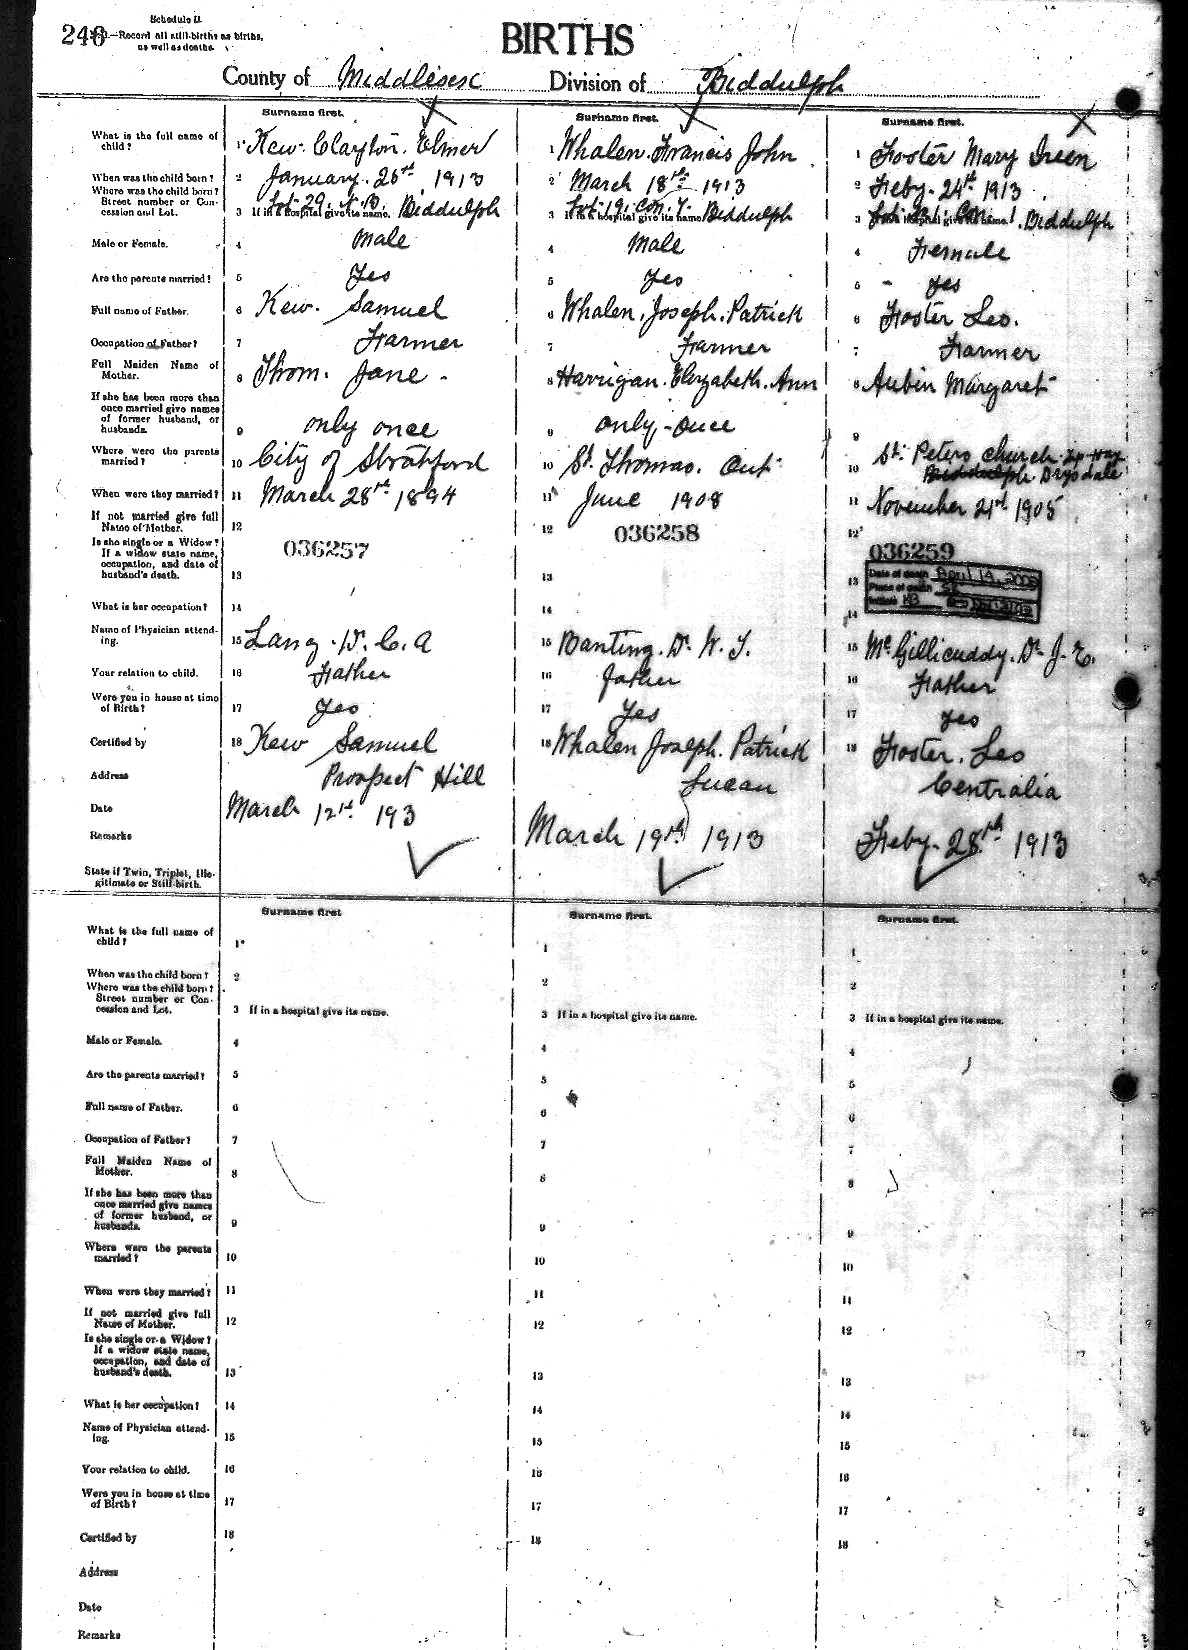 Schedule B.
246
—Record all still-births as births,
as well as deaths.
BIRTHS
County of Middlesex Division of Biddulph
Surname first. Surname first. Surname first.
What is the full name of
child?
1 Kew. Clayton. Elmer
1 Whalen. Francis John
1 Foster Mary Ireen
When was the child born?
2 January. 26st. 1913
2 March 18th 1913
2 Feby. 24th 1913
Where was the child born?
Street number or Con-
cession and Lot.
3 If in a hospital give its name. Lot 29. Biddulph
3 If in a hospital give its name Lot 19. Con. Biddulph
3 If in a hospital give its name. Con 1. Biddulph
Male or Female.
4 Male
4 Male
4 Female
Are the parents married?
5 Yes
5 Yes
5 - Yes
Full name of Father.
6 Kew. Samuel
6 Whalen. Joseph. Patrick
6 Foster Leo.
Occupation of Father?
7 Farmer
7 Farmer
7 Farmer
Full Maiden Name of
Mother.
8 Thom. Jane.
8 Harrigan. Elizabeth. Ann
8 Aubin Margaret
If she has been more than
once married give names
of former husband, or
husbands.
9 only once
9 only-once
9
Where were the parents
married?
10 City of Stratford
10 St. Thomas. Ont
10 St. Peters church. Hay
Biddulph. Drysdale
When were they married?
11 March 28st 1894
11 June 1908
11 November 21st 1905
If not married give full
Name of Mother.
12
12
12
Is she single or a Widow?
If a widow state name,
occupation, and date of
husband's death.
036257
036258
036259
13
13
13
Date of death April 14, 2002
Place of death
Initials KB
What is her occupation?
14
14
14
Name of Physician attend-
ing.
15 Lang. Dr. C. A
15 Banting. Dr. W. T.
15 McGillicuddy. Dr. J. E.
Your relation to child.
16 Father
16 father
16 Father
Were you in house at time
of Birth?
17 Yes
17 Yes
17 Yes
Certified by
18 Kew Samuel
18 Whalen Joseph. Patrick
18 Foster. Leo
Address
Prospect Hill
Lucan
Centralia
Date
March 12st. 193
March 19th 1913
Feby. 28th 1913
Remarks
State if Twin, Triplet, Ille-
gitimate or Still-birth.
Surname first Surname first. Surname first.
What is the full name of
child?
1 1 1
When was the child born?
2 2 2
Where was the child born?
Street number or Con-
cession and Lot.
3 If in a hospital give its name. 3 If in a hospital give its name. 3 If in a hospital give its name.
Male or Female.
4 4 4
Are the parents married?
5 5 5
Full name of Father.
6 6 6
Occupation of Father?
7 7 7
Full Maiden Name of
Mother.
8 8 8
If she has been more than
once married give names
of former husband, or
husbands.
9 9 9
Where were the parents
married?
10 10 10
When were they married?
11 11 11
If not married give full
Name of Mother.
12 12 12
Is she single or a Widow?
If a widow state name,
occupation, and date of
husband's death.
13 13 13
What is her occupation?
14 14 14
Name of Physician attend-
ing.
15 15 15
Your relation to child.
16 16 16
Were you in house at time
of Birth?
17 17 17
Certified by
18 18 18
Address
Date
Remarks